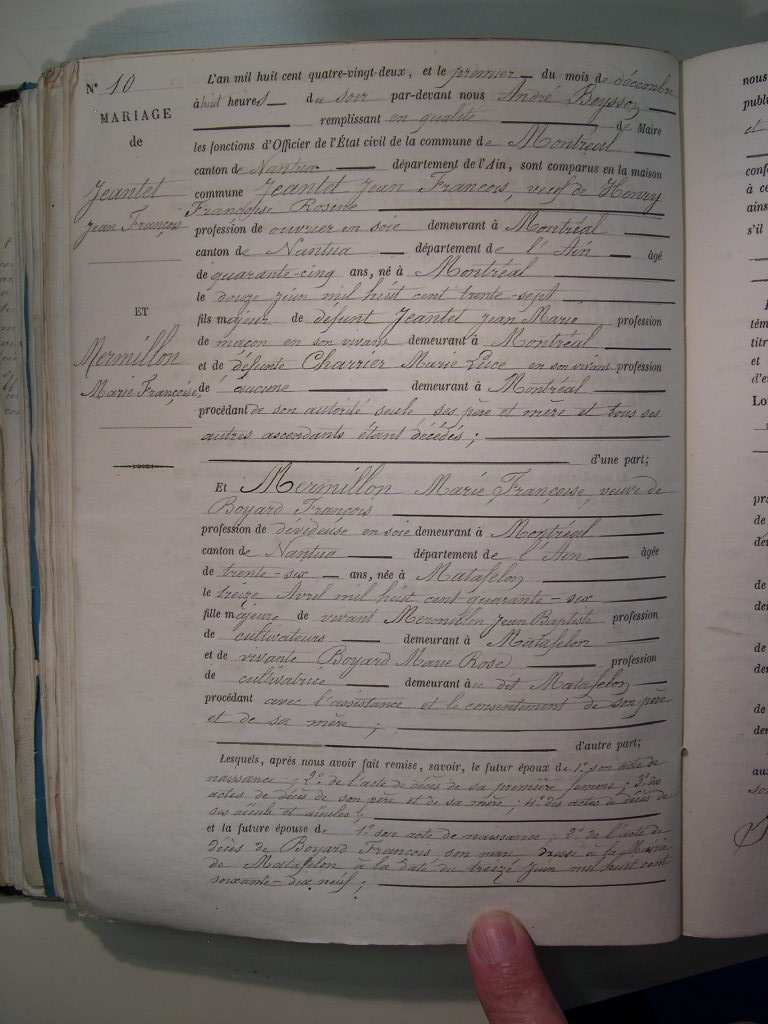 N° 10
MARIAGE
de
Jeantet
Jean François
ET
Mermillon
Marie Françoise,
L'an mil huit cent quatre-vingt-deux, et le premier du mois de décembre
à huit heures du soir par-devant nous André Beysson
remplissant en qualité de Maire
les fonctions d'Officier de l'État civil de la commune de Montréal
canton de Nantua département de l'Ain, sont comparus en la maison
commune Jeantet Jean François, veuf de Henry
Françoise Rosine
profession de ouvrier en soie demeurant à Montréal
canton de Nantua département de l'Ain âgé
de quarante-cinq ans, né à Montréal
le douze juin mil huit cent trente-sept
fils majeur de défunt Jeantet Jean Marie profession
de maçon en son vivant demeurant à Montréal
et de défunte Charrier Marie Luce en son vivant profession
de aucune demeurant à Montréal
procédant de son autorité seule ses père et mère et tous ses
autres ascendants étant décédés ;
d'une part;
Et Mermillon Marie Françoise, veuve de
Boyard François
profession de dévideuse en soie demeurant à Montréal
canton de Nantua département de l'Ain âgée
de trente-six ans, née à Matafelon
le treize Avril mil huit cent quarante-six
fille majeure de vivant Mermillon Jean Baptiste profession
de cultivateurs demeurant à Matafelon
et de vivante Boyard Marie Rose profession
de cultivatrice demeurant au dit Matafelon
procédant avec l'assistance et le consentement de son père
et de sa mère ;
d'autre part;
Lesquels, après nous avoir fait remise, savoir, le futur époux de 1° son acte de
naissance ; 2° de l'acte de décès de sa première femme ; 3° des
actes de décès de son père et de sa mère ; 4° des actes de décès de
ses aïeuls et aïeules ;
et la future épouse de 1° son acte de naissance ; 2° de l'acte de
décès de Boyard François son mari, dressé à la Mairie
de Matafelon à la date du treize Juin mil huit cent
soixante-dix neuf ;